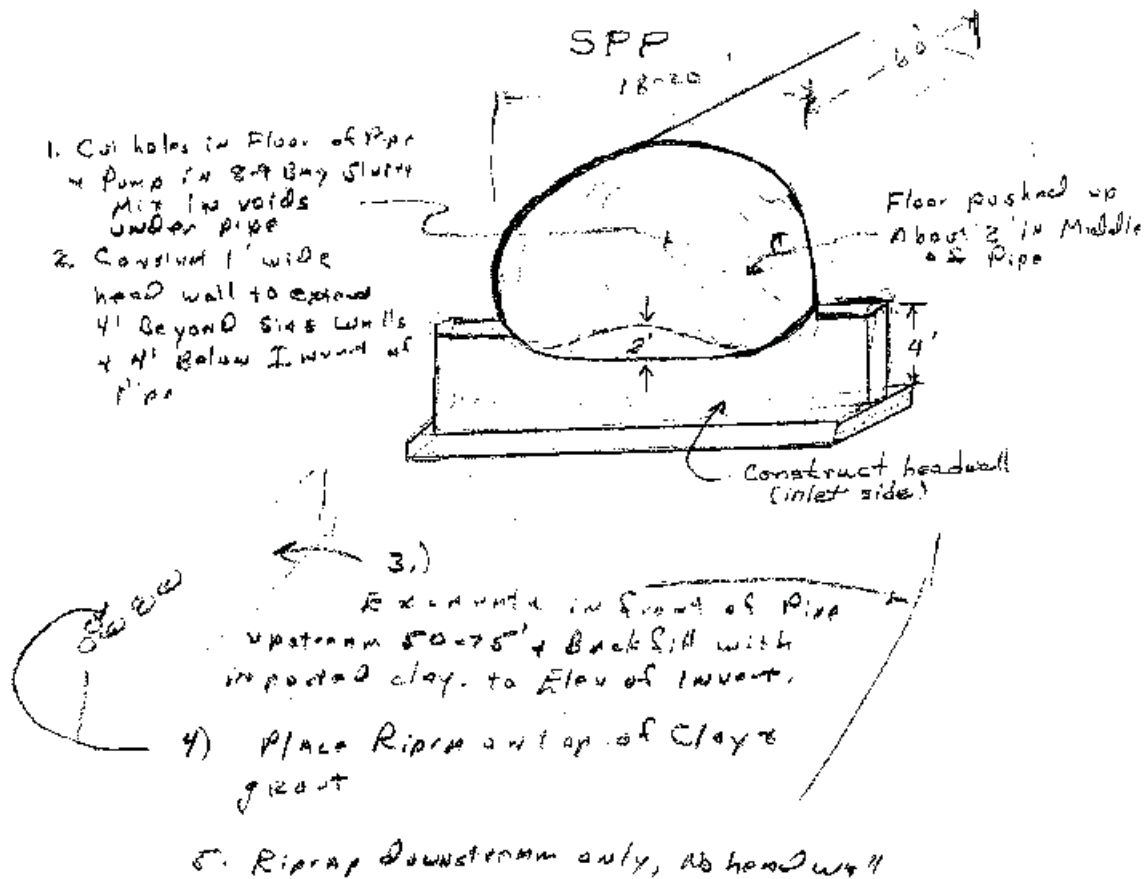 SPP
18-20'
60'
1. Cut holes in Floor of Pipe
+ Pump in 8-9 Bag Slurry
Mix in voids
under pipe
2. Construct 1' wide
head wall to extend
4' Beyond Side Walls
+ 4' Below Invert of
Pipe
Floor pushed up
About 2' in Middle
of Pipe
2'
4'
Construct headwall
(inlet side)
3.)
Excavate in front of Pipe
upstream 50-75' + Backfill with
imported clay. to Elev of Invert.
4) Place Riprap on top of Clay +
grout
5. Riprap Downstream only, No headwall